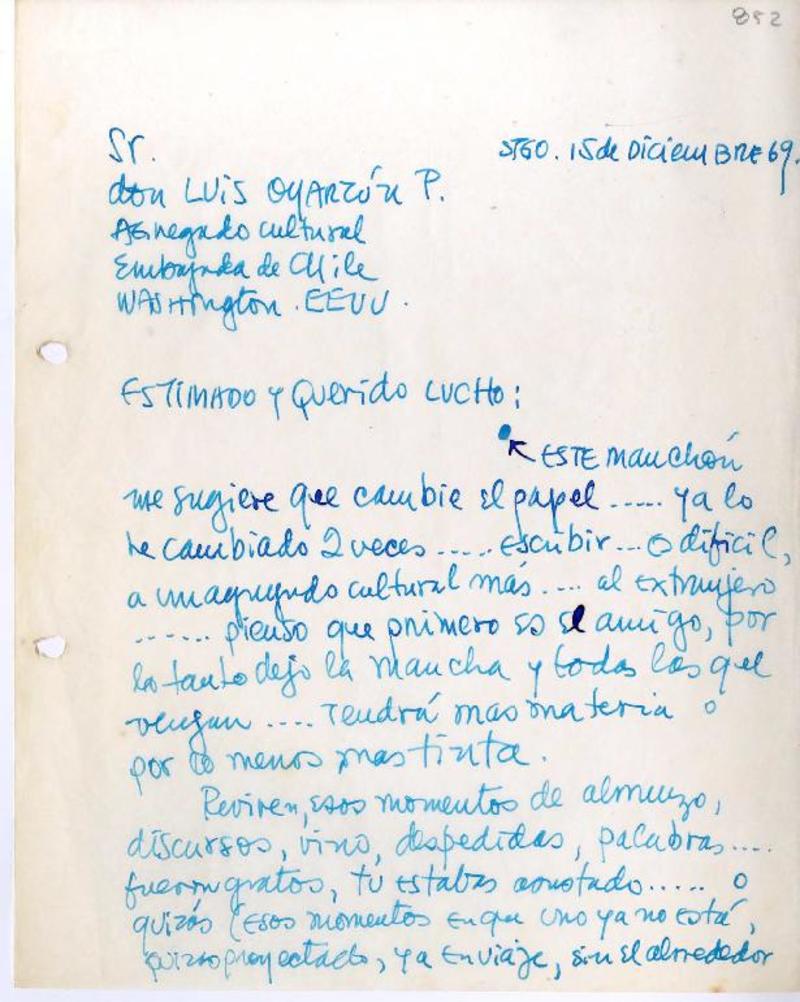 852
STGO. 15 de DiciemBRE 69.
Sr.
don LUiS OYARZÚN P.
Agregado cultural
Embajada de CHile
WASHington. EEUU.
ESTIMADO y QUerido LUCHO:
ESTE manchón
me sugiere que cambie el papel ..... ya lo
he cambiado 2 veces ..... escribir ... o dificil,
a un agregado cultural más .... al extranjero
....... pienso que primero es el amigo, por
lo tanto dejo la mancha y todas las que
vengan .... Tendrá mas materia o
por lo menos mas tinta.
Reviven, esos momentos de almuerzo,
discursos, vino, despedidas, palabras ....
fueron gratos, tú estabas ..... o
quizás (esos momentos en que uno ya no está,
quizás proyectado, ya en viaje, sin el alrrededor